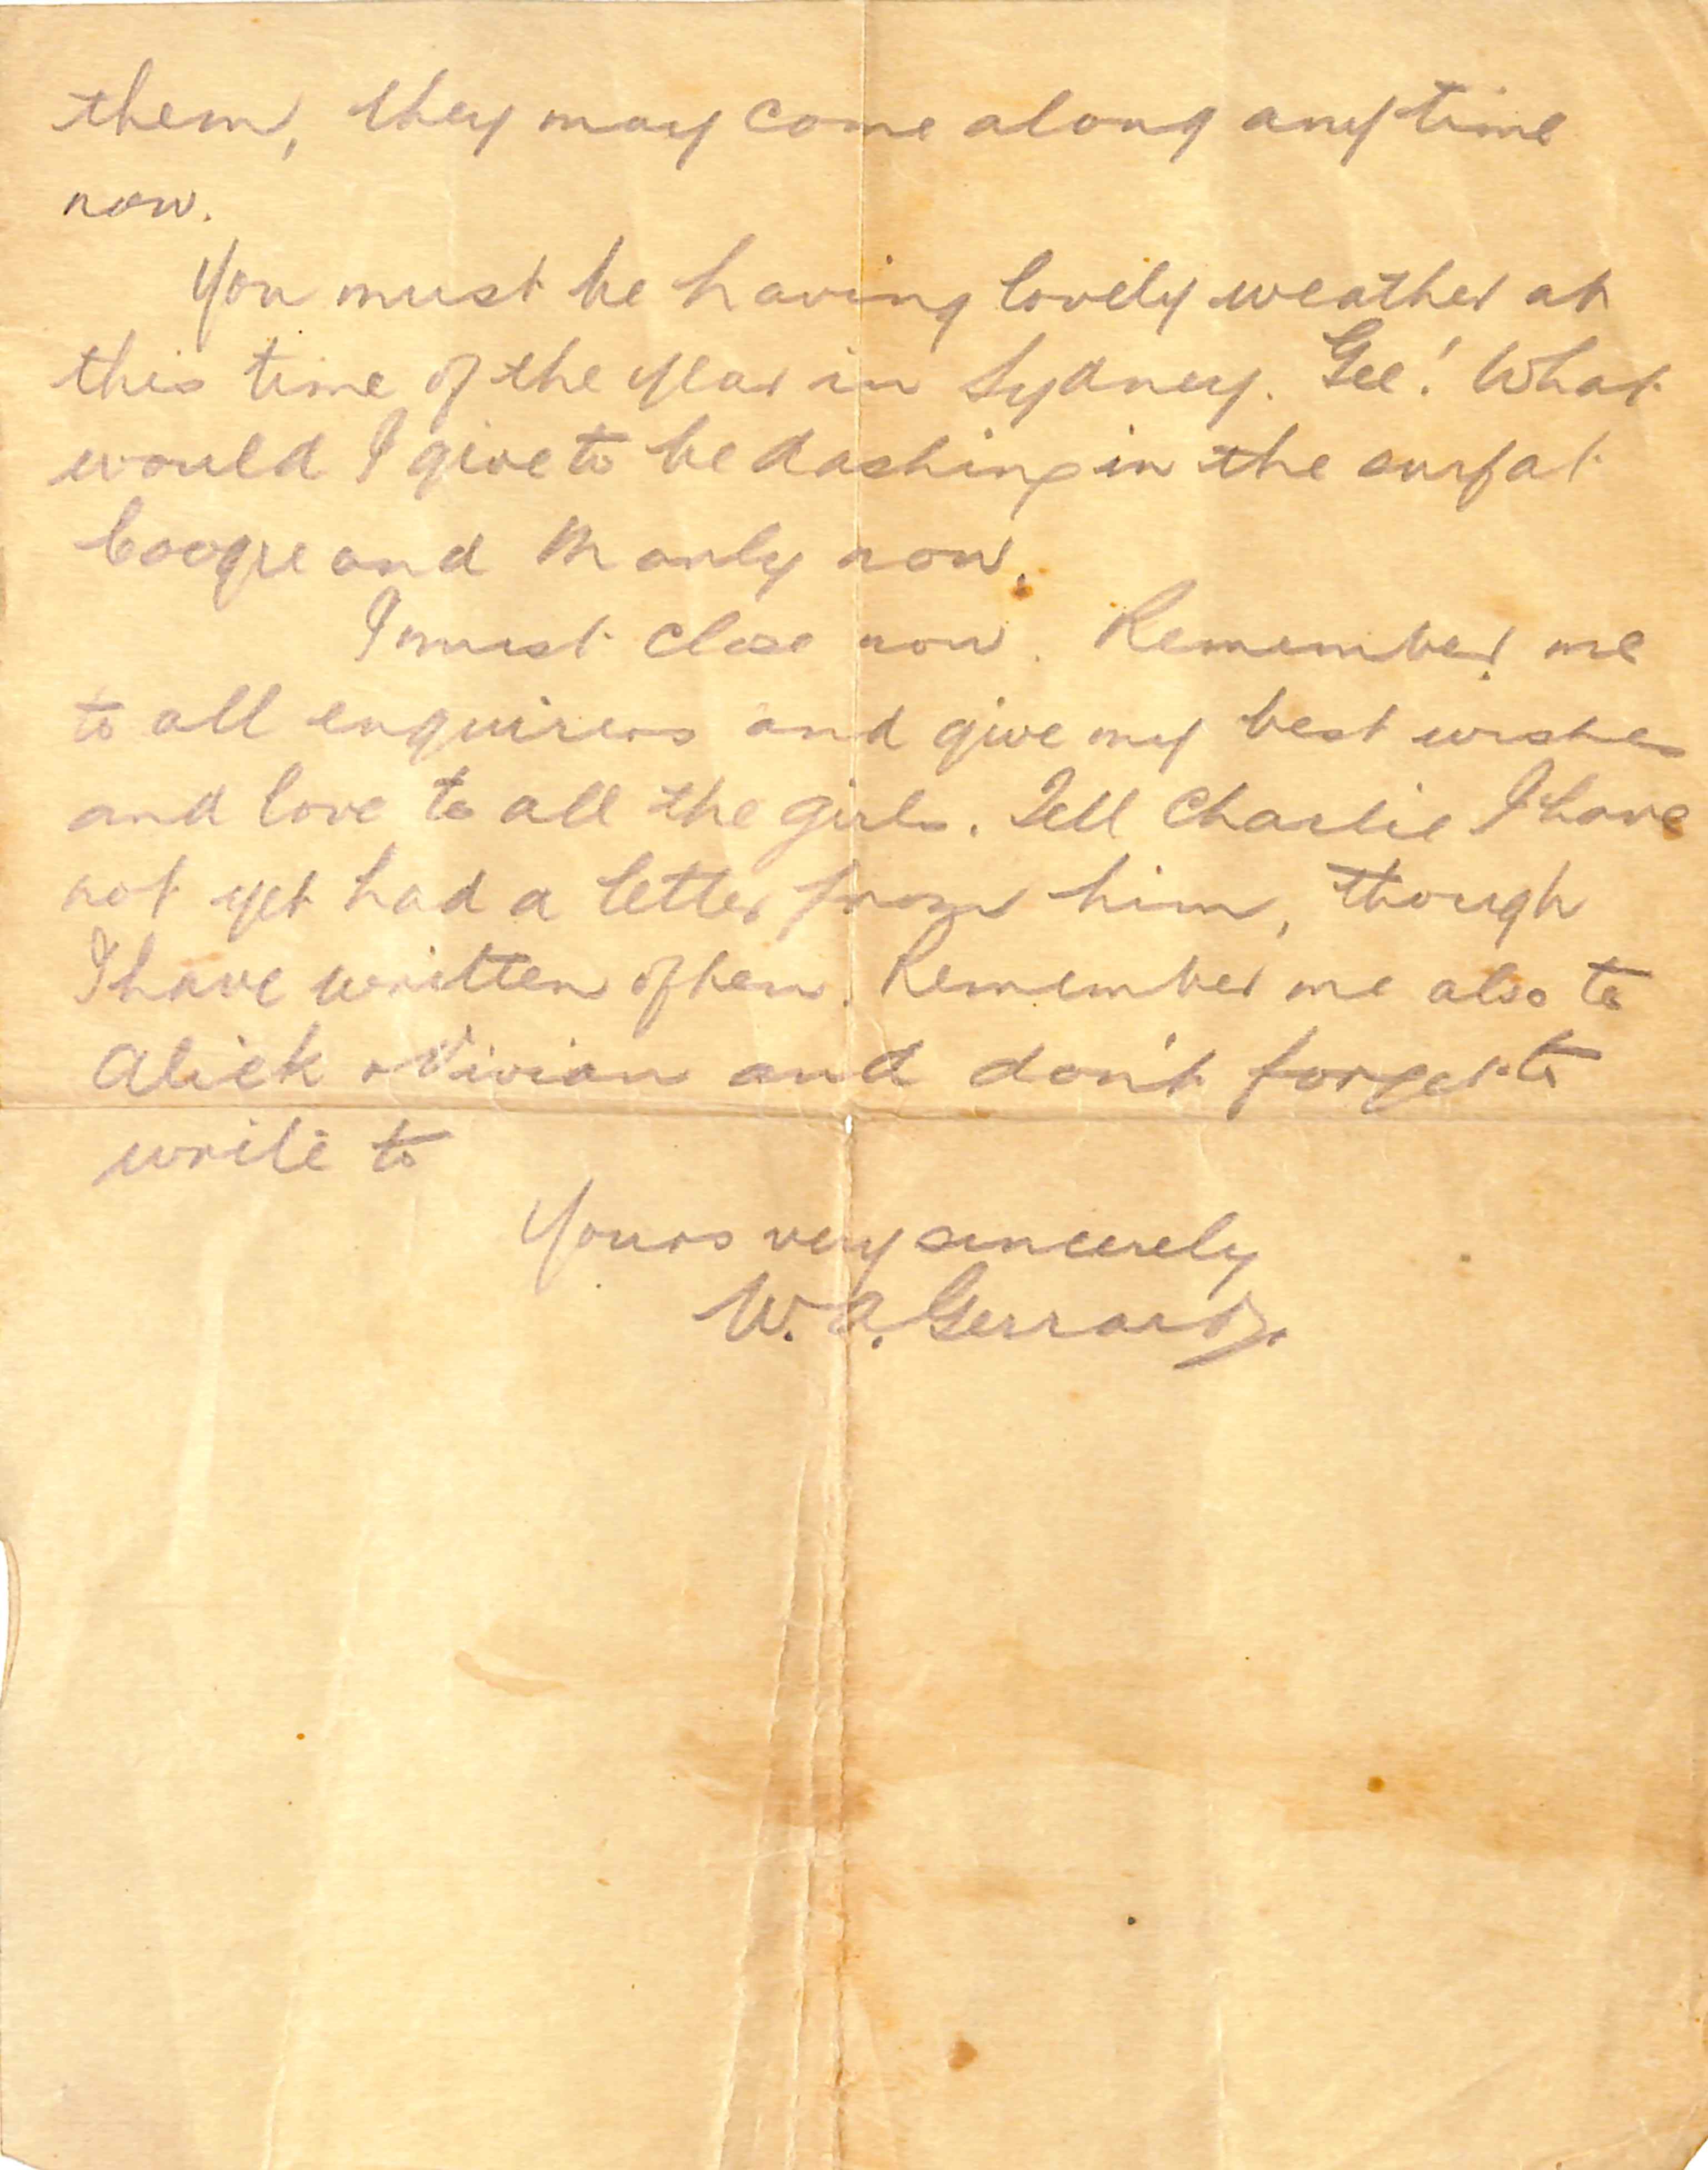 them, they may come along any time
now.
You must be having lovely weather at
this time of the year in Sydney. Gee! What
would I give to be dashing in the surf at
Coogee and Manly now.
I must close now. Remember me
to all enquirers and give my best wishes
and love to all the girls. Tell Charlie I have
not yet had a letter from him, though
I have written often. Remember me also to
Alick & Vivian and don't forget to
write to
Yours very sincerely
W. A. Gerrard.